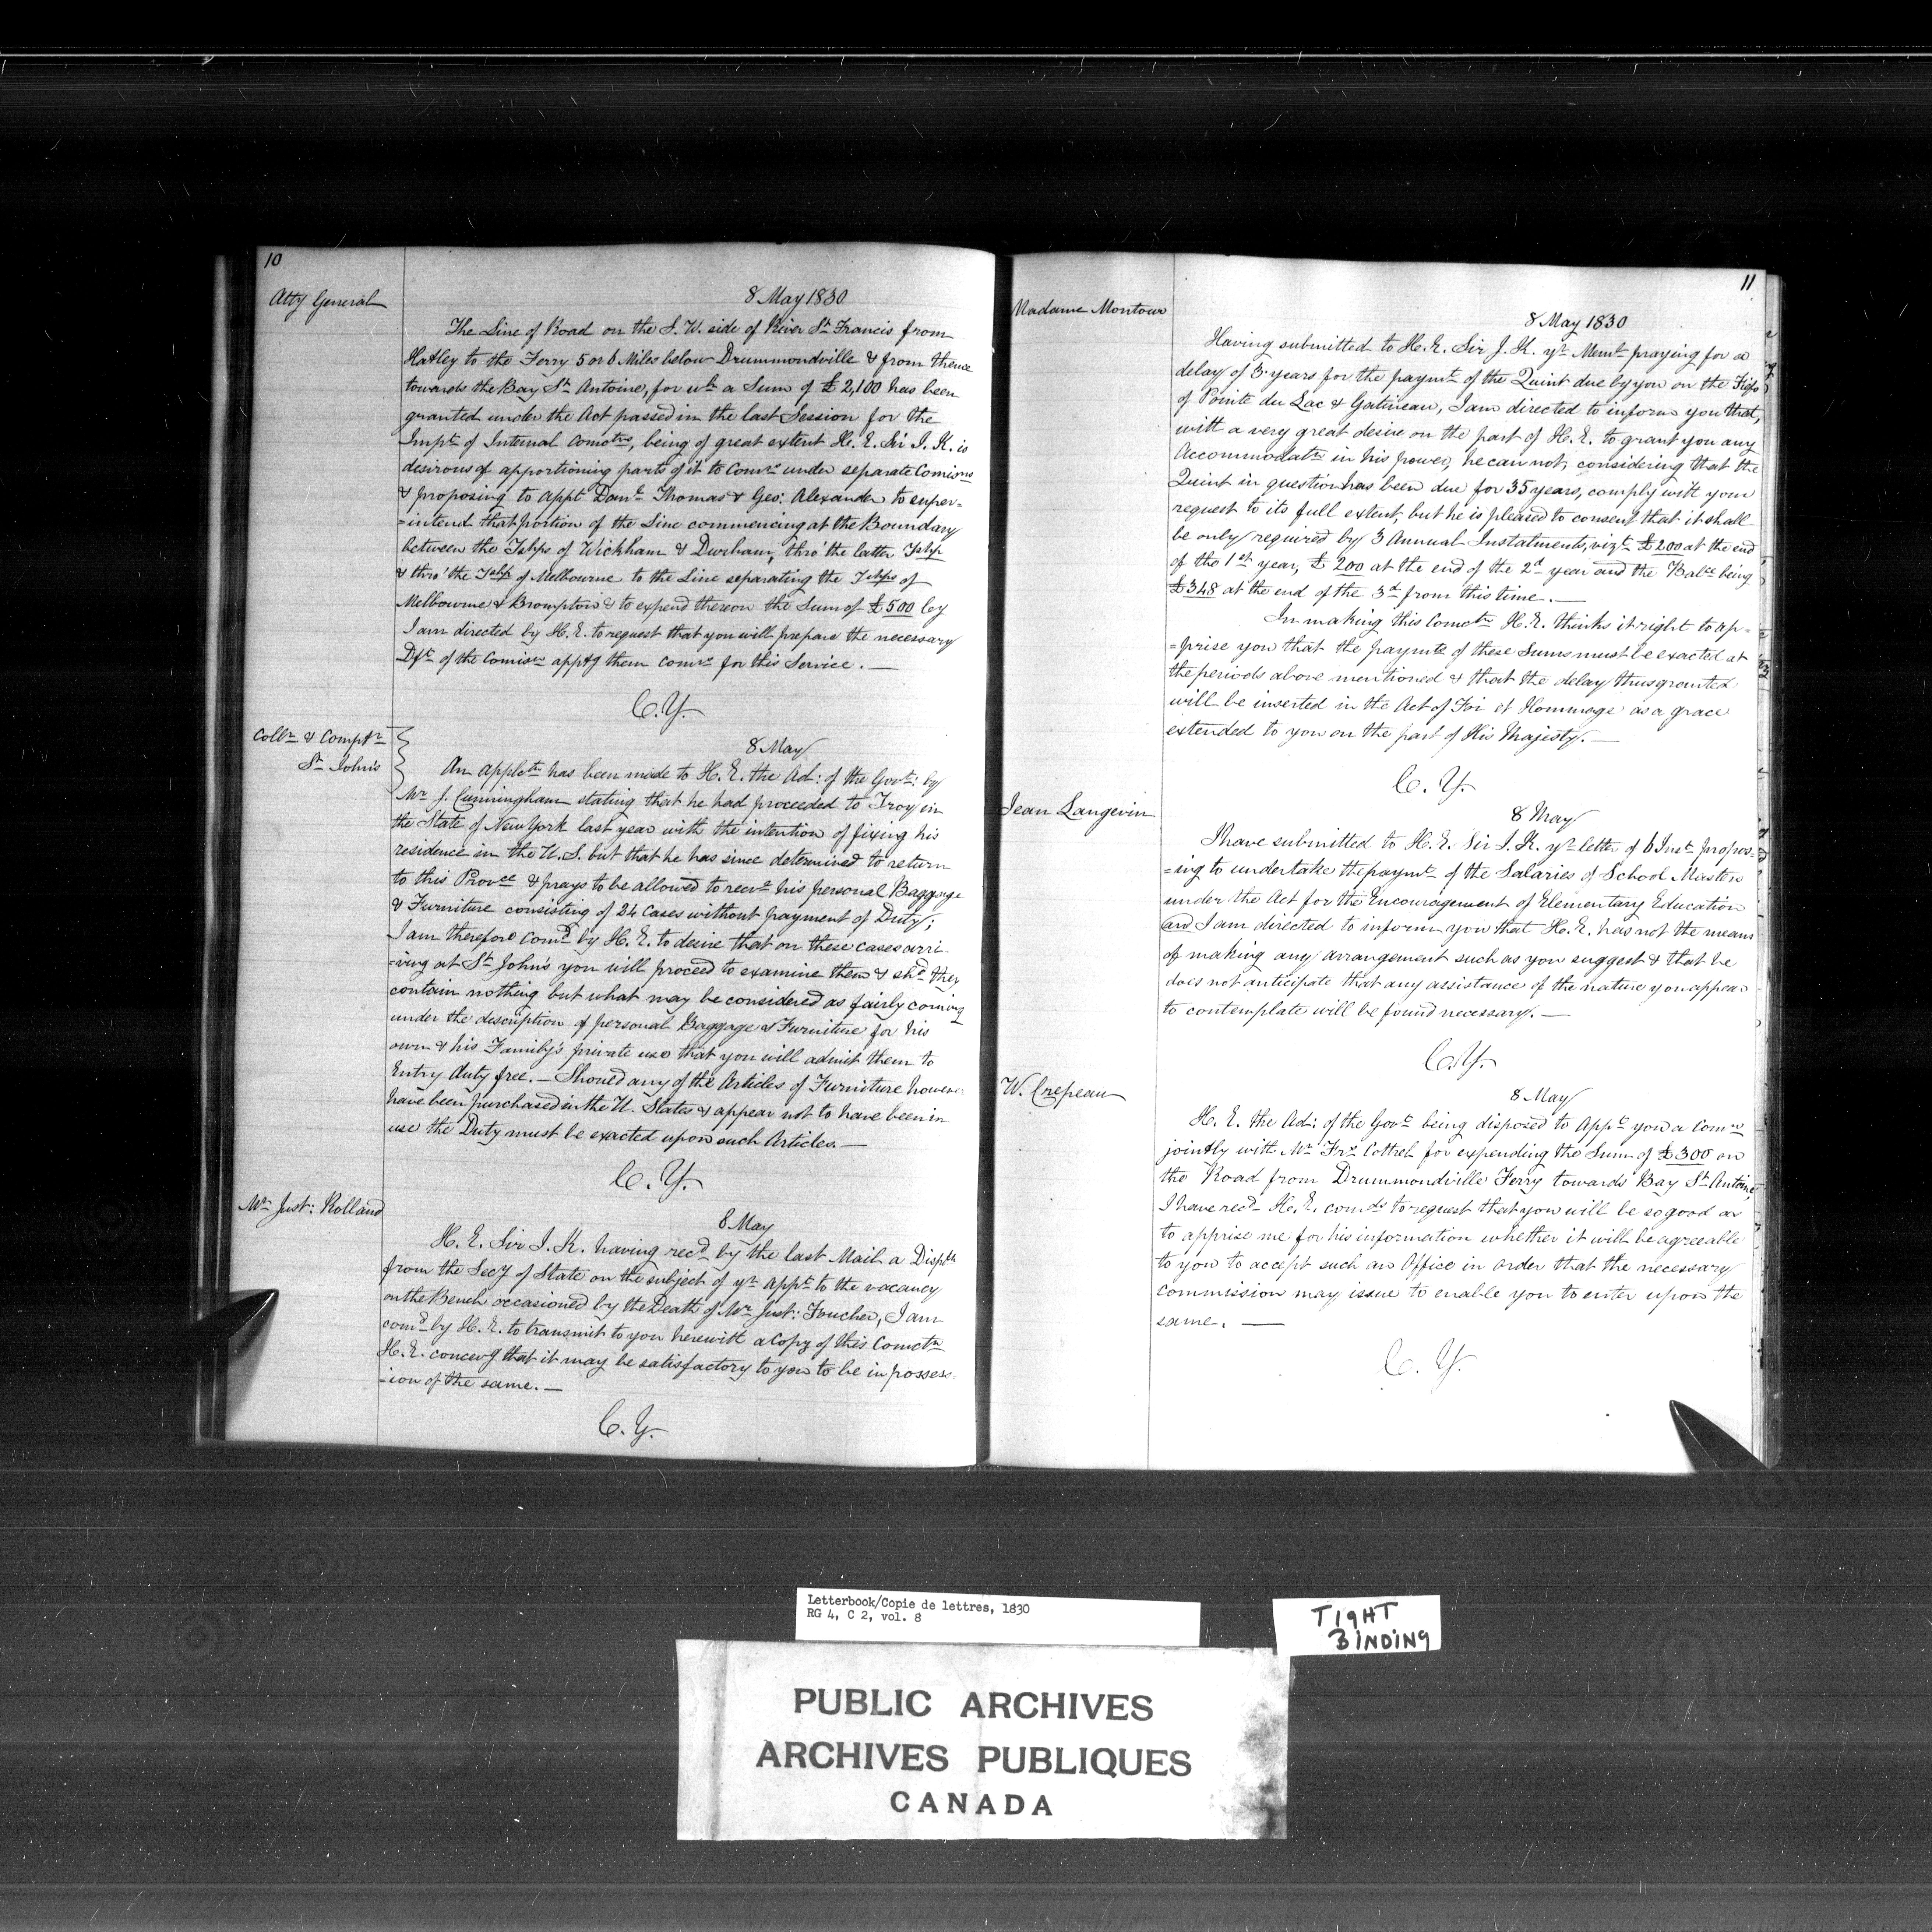 10
Atty General
8 May 1830
The Line of Road on the S. W. side of River St Francis from
Hatley to the Ferry 5 or 6 Miles below Drummondville & from thence
towards the Bay St Antoine, for wh a Sum of £ 2,100 has been
granted under the Act passed in the last Session for the
Impt of Internal Comctns, being of great extent H. E. Sir J. K. is
desirous of apportioning parts of it to Comrs under separate Comisns
& proposing to appt Danl Thomas & Geo: Alexander to super=
=intend that portion of the Line commencing at the Boundary
between the Tshps of Wickham & Durham, thro' the latter Tshp
& thro' the Tshp of Melbourne to the Line separating the Tshps of
Melbourne & Brompton & to expend thereon the Sum of £500 Cy
I am directed by H. E. to request that you will prepare the necessary
Dft of the Comisn apptg them Comrs for this Service. —
C. Y.
Collr & Comptr
St John's
8 May
An applctn has been made to H. E. the Ad: of the Govt: by
Mr J. Cunningham stating that he had proceeded to Troy in
the State of New York last year with the intention of fixing his
residence in the U. S. but that he has since determined to return
to this Provce & prays to be allowed to recve his personal Baggage
& Furniture consisting of 24 Cases without payment of Duty;
I am therefore comd by H. E. to desire that on these cases arri
=ving at St John's you will proceed to examine them & shd they
contain nothing but what may be considered as fairly coming
under the description of personal Baggage & Furniture for his
own & his Family's private use that you will admit them to
Entry duty free. — Should any of the Articles of Furniture however
have been purchased in the U. States & appear not to have been in
use the Duty must be exacted upon such Articles. —
C. Y.
Mr Just: Rolland
8 May
H. E. Sir J. K. having recd by the last Mail a Dispth
from the Secy of State on the subject of yr appt to the vacancy
on the Bench occasioned by the Death of Mr Just: Foucher, I am
comd by H. E. to transmit to you herewith a Copy of this Comctn
H. E. concevg that it may be satisfactory to you to be in possess
=ion of the same. —
C. Y.
11
Madame Montour
8 May 1830
Having submitted to H. E. Sir J. K. yr Memt praying for a
delay of 3 years for the paymt of the Quint due by you on the Fiefs
of Pointe du Lac & Gatineau, I am directed to inform you that,
with a very great desire on the part of H. E. to grant you any
Accommodatn in his power, he can not, considering that the
Quint in question has been due for 35 years, comply with your
request to its full extent, but he is pleased to consent that it shall
be only required by 3 Annual Instalments, vizt £200 at the end
of the 1st year, £ 200 at the end of the 2d year and the Balce being
£348 at the end of the 3d from this time. —
In making this Comctn H. E. thinks it right to ap=
=prise you that the paymts of these Sums must be exacted at
the periods above mentioned & that the delay thus granted
will be inserted in the Act of Foi et Hommage as a grace
extended to you on the part of His Majesty. —
C. Y.
Jean Langevin
8 May
I have submitted to H. E. Sir J. K. yr letter of 6 Inst propos=
=ing to undertake the paymt of the Salaries of School Masters
under the Act for the Encouragement of Elementary Education
and I am directed to inform you that H. E. has not the means
of making any arrangement such as you suggest & that he
does not anticipate that any assistance of the nature you appear
to contemplate will be found necessary. —
C. Y.
W. Crepeau
8 May
H. E. the Ad: of the Govt being disposed to Appt you a Comr
jointly with Mr Frs Cottrel for expending the Sum of £300 on
the Road from Drummondville Ferry towards Bay St Antoine
I have recd H. E. comds to request that you will be so good as
to apprise me for his information whether it will be agreeable
to you to accept such an Office in order that the necessary
commission may issue to enable you to enter upon the
same. —
C. Y.
Letterbook/Copie de lettres, 1830
RG 4, C 2, vol. 8
TIGHT
BINDING
PUBLIC ARCHIVES
ARCHIVES PUBLIQUES
CANADA